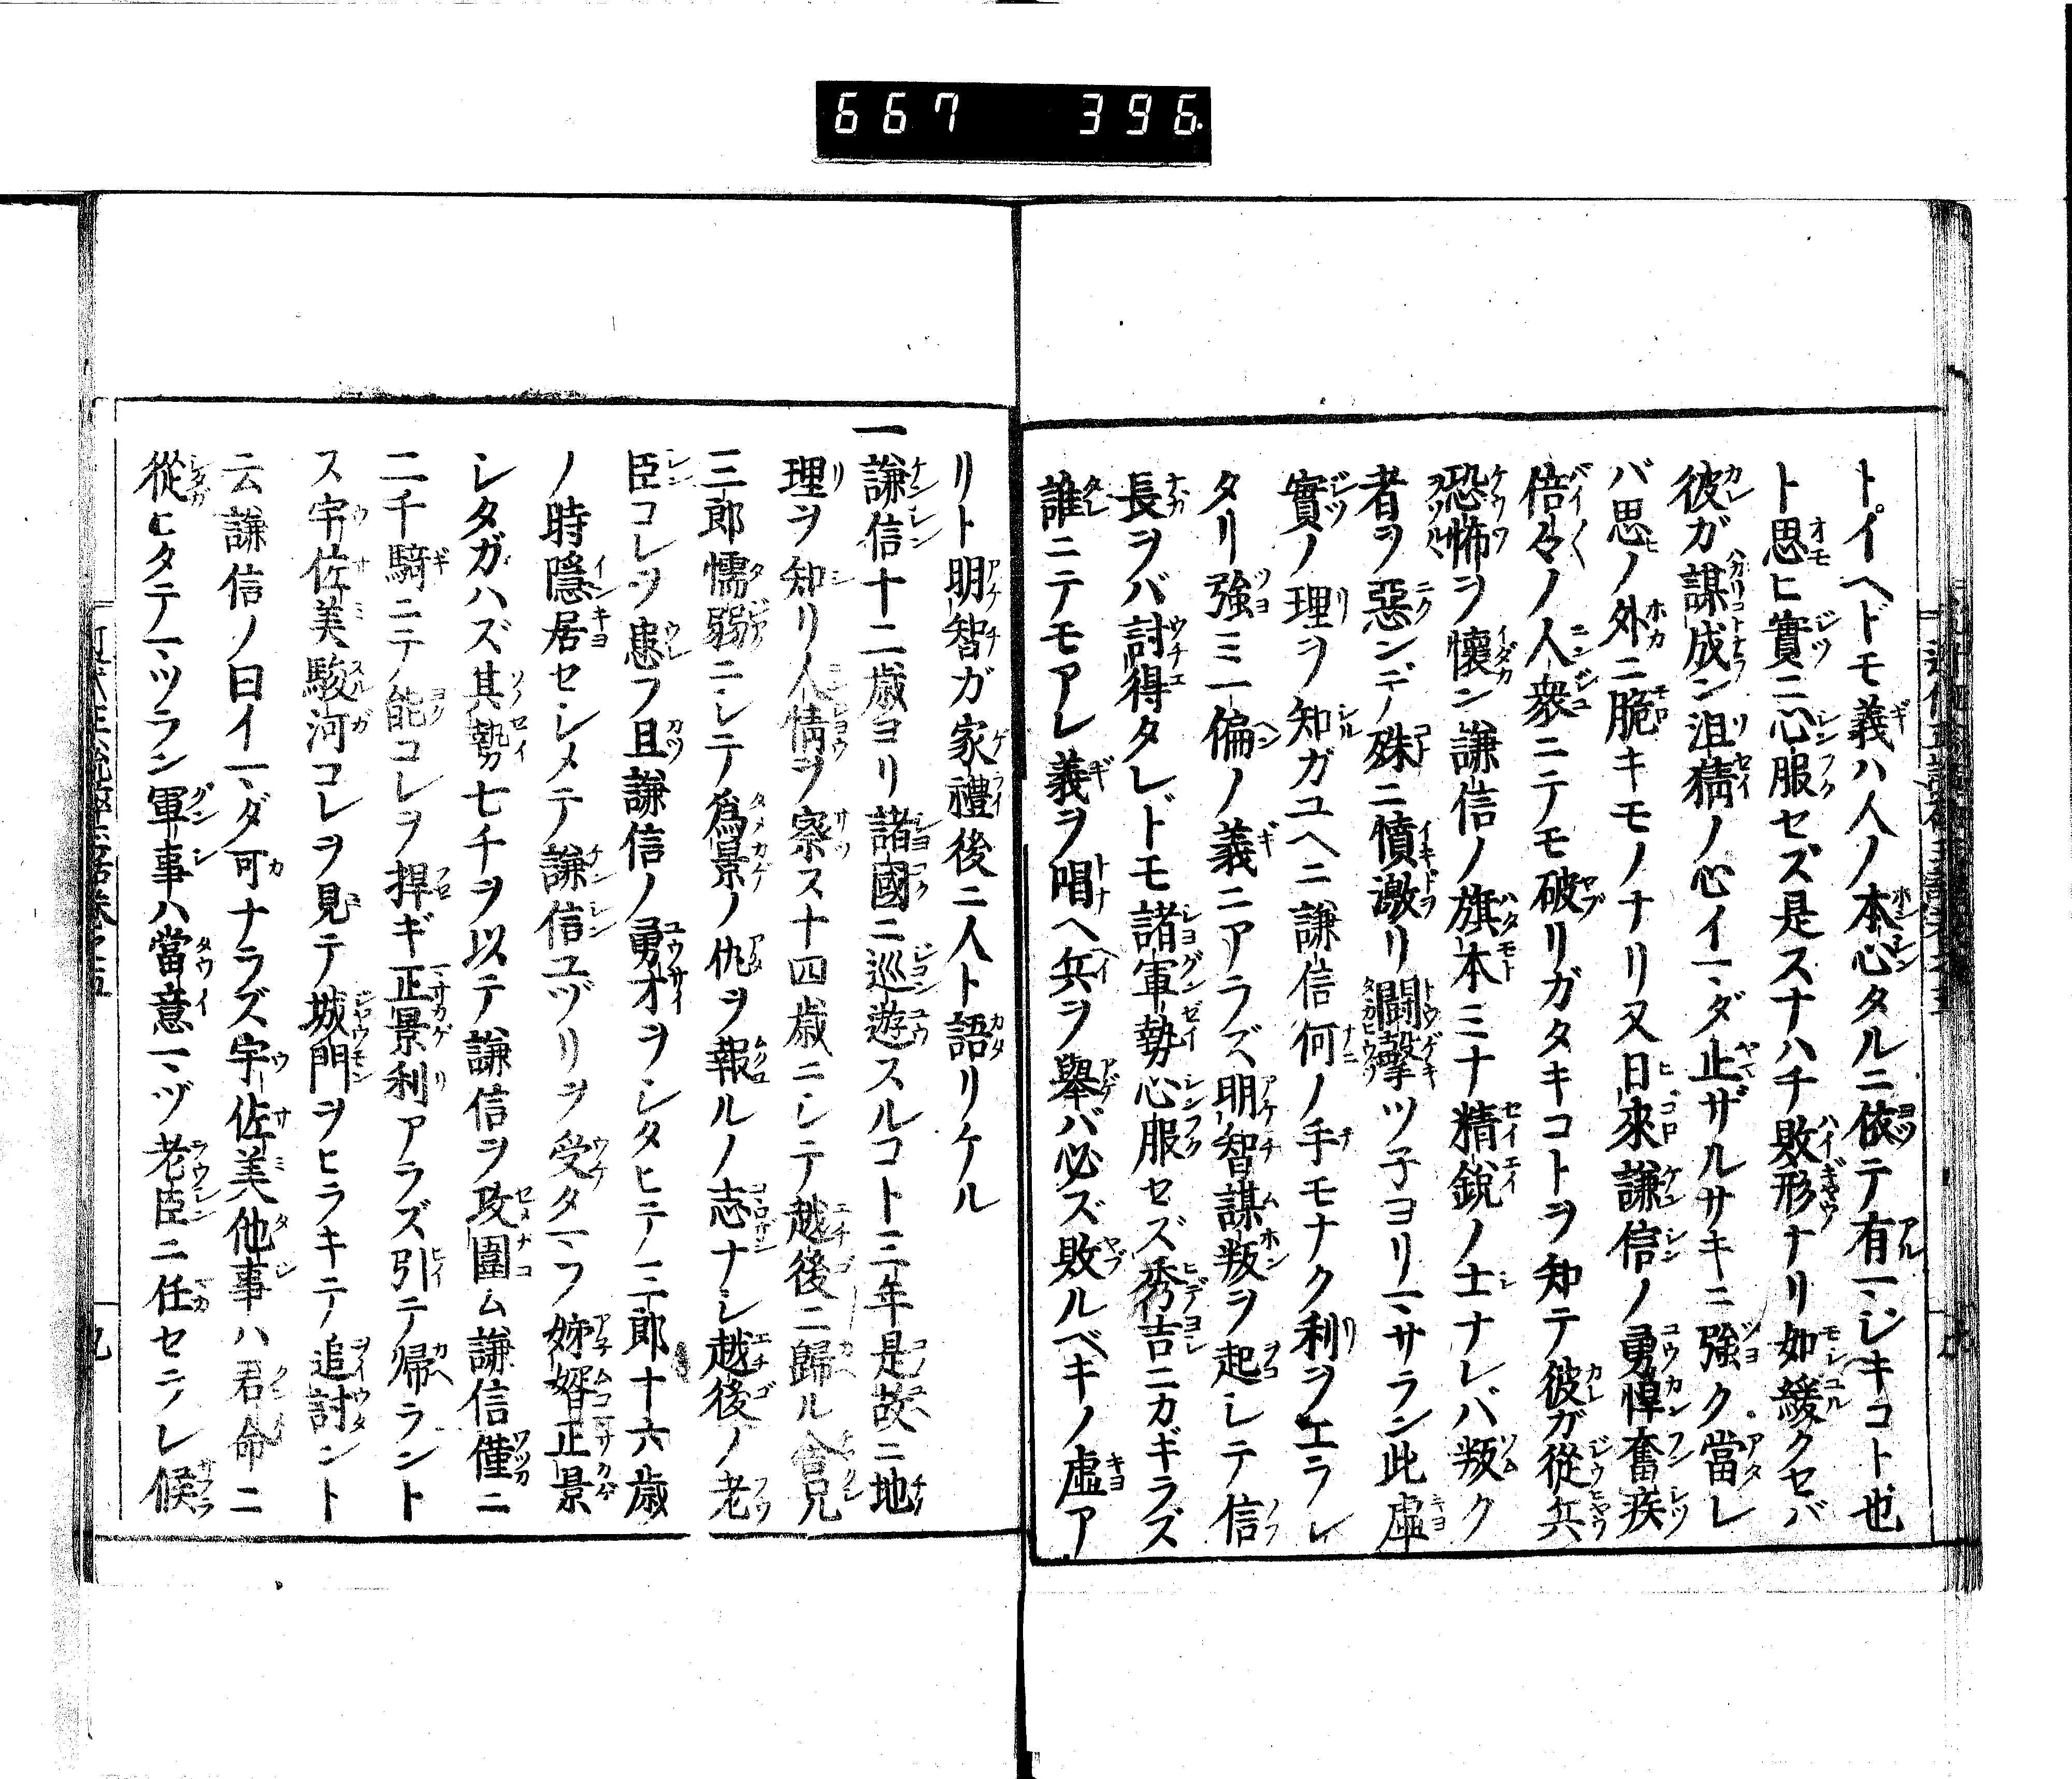 667 396
トイヘドモ義ハ人ノ本心タルニ依テ有マジキコト也
ト思ヒ實ニ心服セズ是スナハチ敗形ナリ如緩クセバ
彼ガ謀成ン沮精ノ心イマダ止ザルサキニ強ク當レ
バ思ノ外ニ脆キモノナリ又日來謙信ノ勇悍奮疾
倍々ノ人衆ニテモ破リガタキコトヲ知テ彼ガ從兵
恐怖ヲ懷ン謙信ノ旗本ミナ精鋭ノ士ナレバ叛ク
者ヲ惡ンデ殊ニ憤激リ鬪擊ツ子ヨリマサラン此虛
實ノ理ヲ知ガユヘニ謙信何ノ手モナク利ヲエラレ
タリ強ミ一偏ノ義ニアラズ明智謀叛ヲ起シテ信
長ヲバ討得タレドモ諸軍勢心服セズ秀吉ニカギラズ
誰ニテモアレ義ヲ唱ヘ兵ヲ擧バ必ズ敗ルベキノ虛ア
リト明智ガ家禮後ニ人ト語リケル
一謙信十二歳ヨリ諸國ニ巡遊スルコト三年是故ニ地
理ヲ知リ人情ヲ察ス十四歳ニシテ越後ニ歸ル舎兄
三郎懦弱ニシテ爲景ノ仇ヲ報ルノ志ナシ越後ノ老
臣コレヲ患フ且謙信ノ勇才ヲシタヒテ三郎十六歳
ノ時隱居セシメテ謙信ユヅリヲ受タマフ姊婿正景
シタガハズ其勢七千ヲ以テ謙信ヲ攻圍ム謙信僅ニ
二千騎ニテ能コレヲ捍ギ正景利アラズ引テ帰ラント
ス宇佐美駿河コレヲ見テ城門ヲヒラキテ追討ント
云謙信ノ曰イマダ可ナラズ宇佐美他事ハ君命ニ
從ヒタテマツラン軍事ハ當意マヅ老臣ニ任セラレ候
九